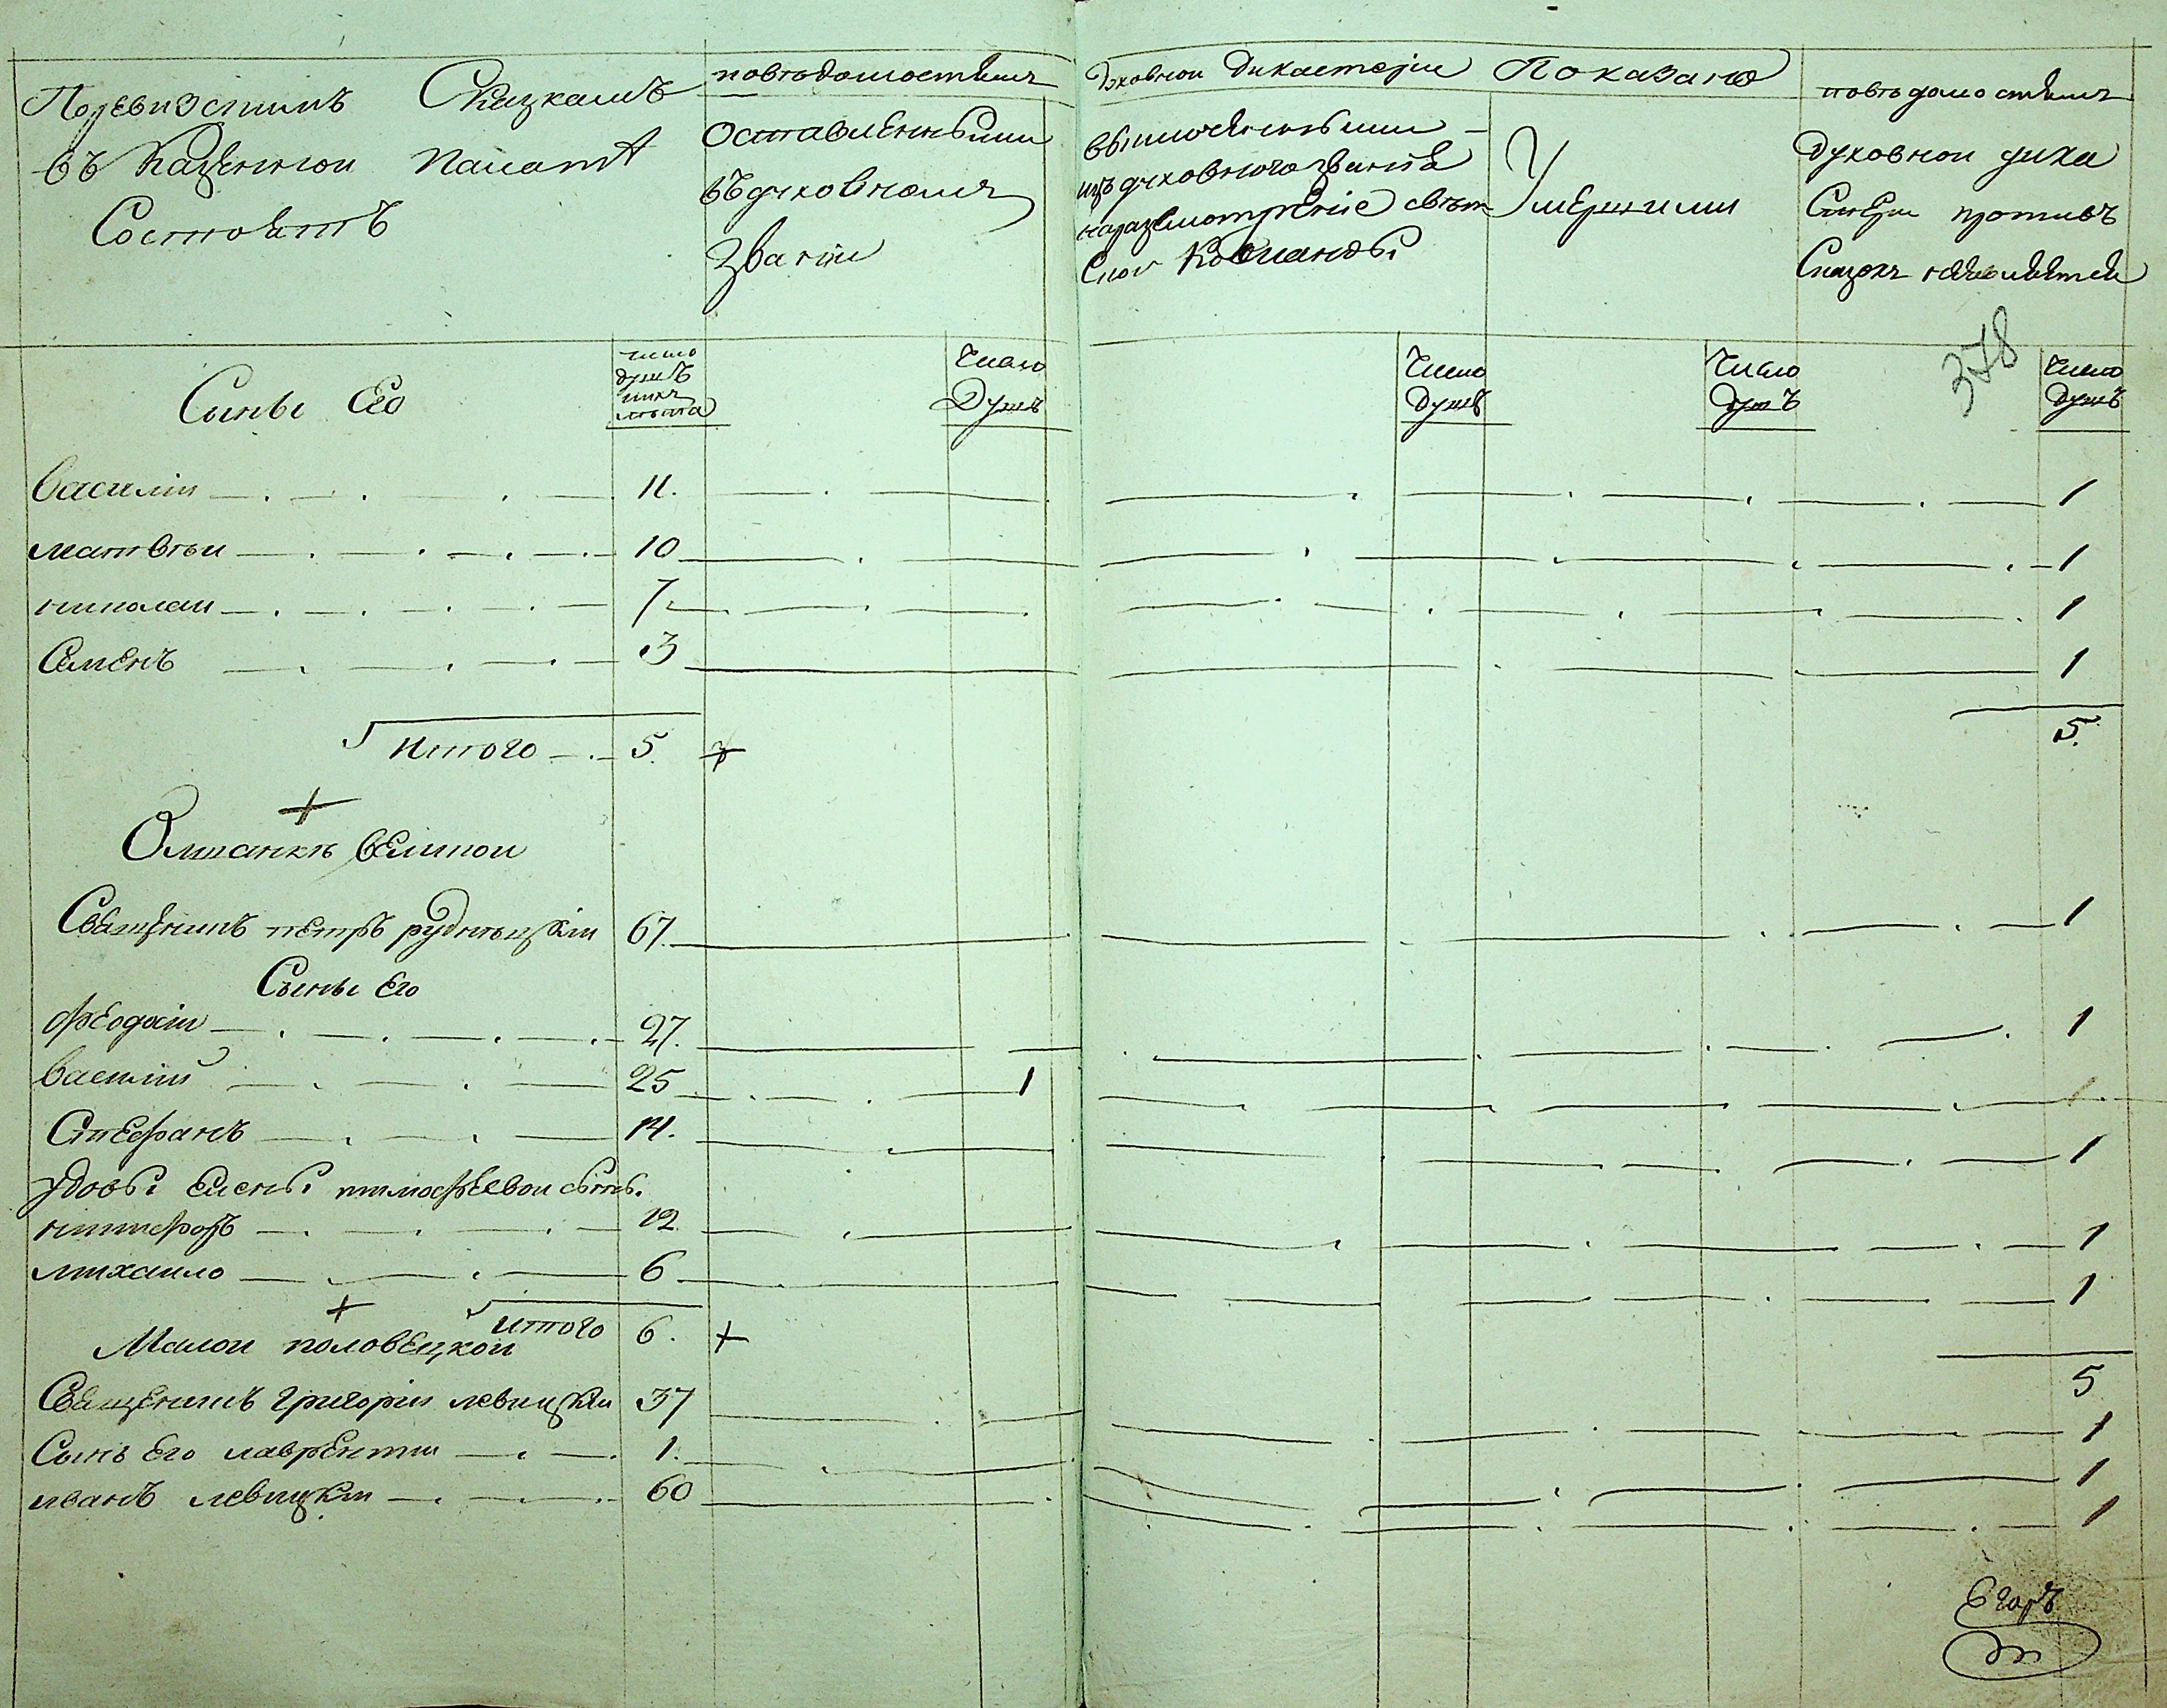 Поревизскимъ Сказкамъ
въ Казенной палатѣ
Состоитъ
повѣдомостямъ
Оставленными
въ духовномъ
Звании
Духовной Дикастерии Показано
выключенными
изъ духовного звания
на разсмотрение свѣт
Ской Команды
Умершими
повѣдомостямъ
Духовной дика
Стерии противъ
Сказокъ неявляется
378
Сыны Его
число
душъ
ихъ
лѣта
Число
Душъ
Число
Душъ
Число
Душъ
Число
Душъ
василий 11. 1
матвѣи 10 1
николаи 7 1
Семенъ 3 1
Итого 5. 5.
Олшанки великой
Священикъ петръ рудницкии 67. 1
Сыны Его
феодосии 27. 1
василий 25 1
Стефанъ 14. 1
удовы елены тимофеевой сыны
никифоръ 12 1
михаило 6 1
итого 6. 5
Малой половецкой
Священикъ григории левицкии 37 1
Сынъ Его лаврентии 1. 1
иванъ левицкии 60 1
Егоръ